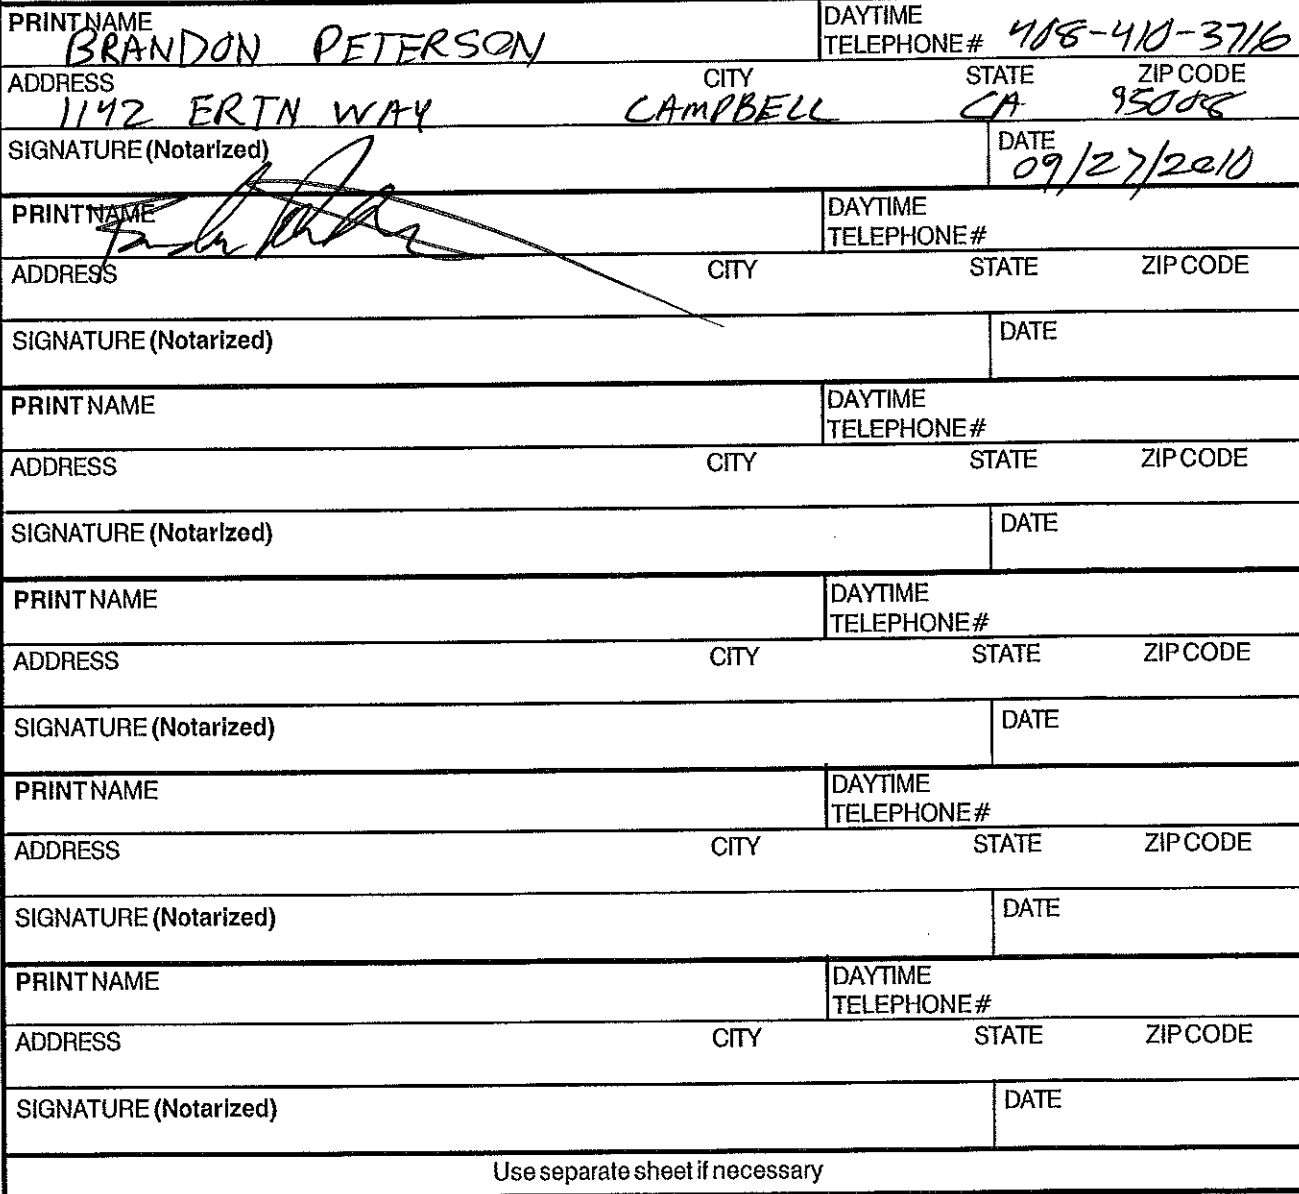 PRINT NAME BRANDON PETERSON DAYTIME TELEPHONE # 408-410-3716
ADDRESS CITY STATE ZIP CODE
1142 ERIN WAY CAMPBELL CA 95008
SIGNATURE (Notarized) DATE 09/27/2010
PRINT NAME DAYTIME TELEPHONE #
ADDRESS CITY STATE ZIP CODE
SIGNATURE (Notarized) DATE
PRINT NAME DAYTIME TELEPHONE #
ADDRESS CITY STATE ZIP CODE
SIGNATURE (Notarized) DATE
PRINT NAME DAYTIME TELEPHONE #
ADDRESS CITY STATE ZIP CODE
SIGNATURE (Notarized) DATE
PRINT NAME DAYTIME TELEPHONE #
ADDRESS CITY STATE ZIP CODE
SIGNATURE (Notarized) DATE
PRINT NAME DAYTIME TELEPHONE #
ADDRESS CITY STATE ZIP CODE
SIGNATURE (Notarized) DATE
Use separate sheet if necessary